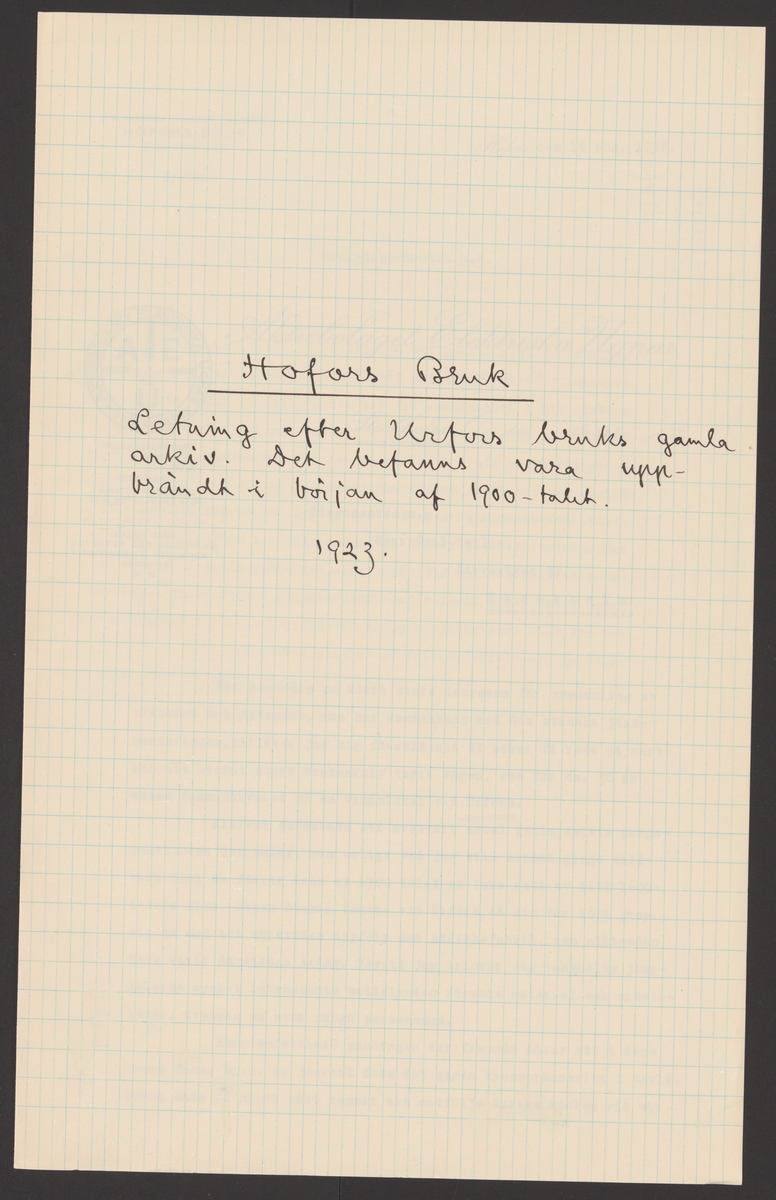 Hofors Bruk
Letning efter Urfors bruks gamla
arkiv. Det befanns vara upp-
brändt i början af 1900-talet.
1923.